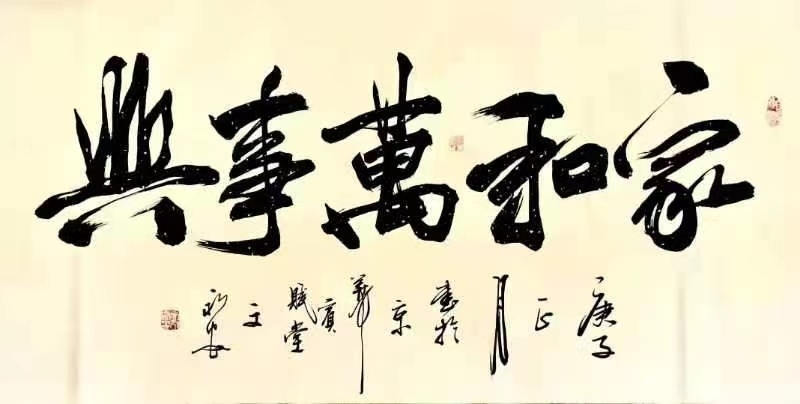 家和萬事興
庚子正月書於京華賓賦堂文